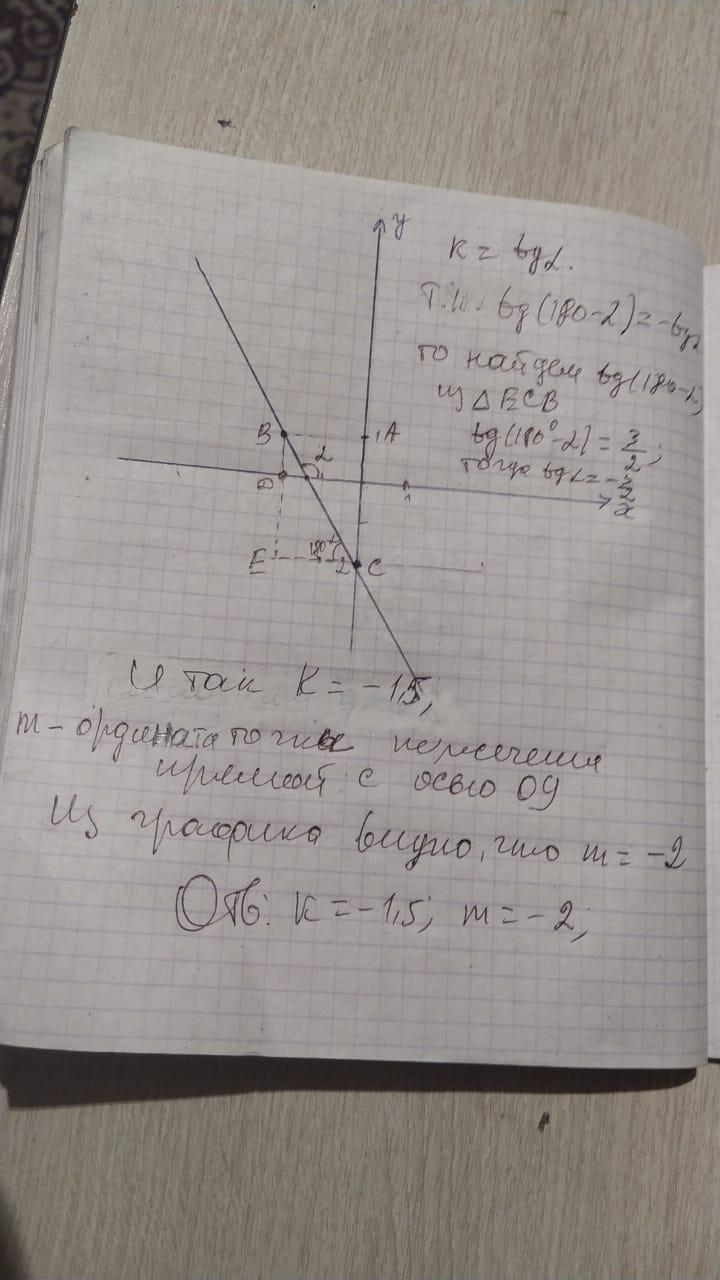 y
K = tgα.
Т.к. tg(180-α) = -tgα
то найдем tg(180-α)
из ΔECB
tg(180°-α) = 3/2;
тогда tgα = -3/2
B
1 A
α
D
1
x
E
180-α
-2 C
Итак K = -1,5;
m - ордината точки пересечения
прямой с осью OY
Из графика видно, что m = -2
Отв: K = -1,5; m = -2;